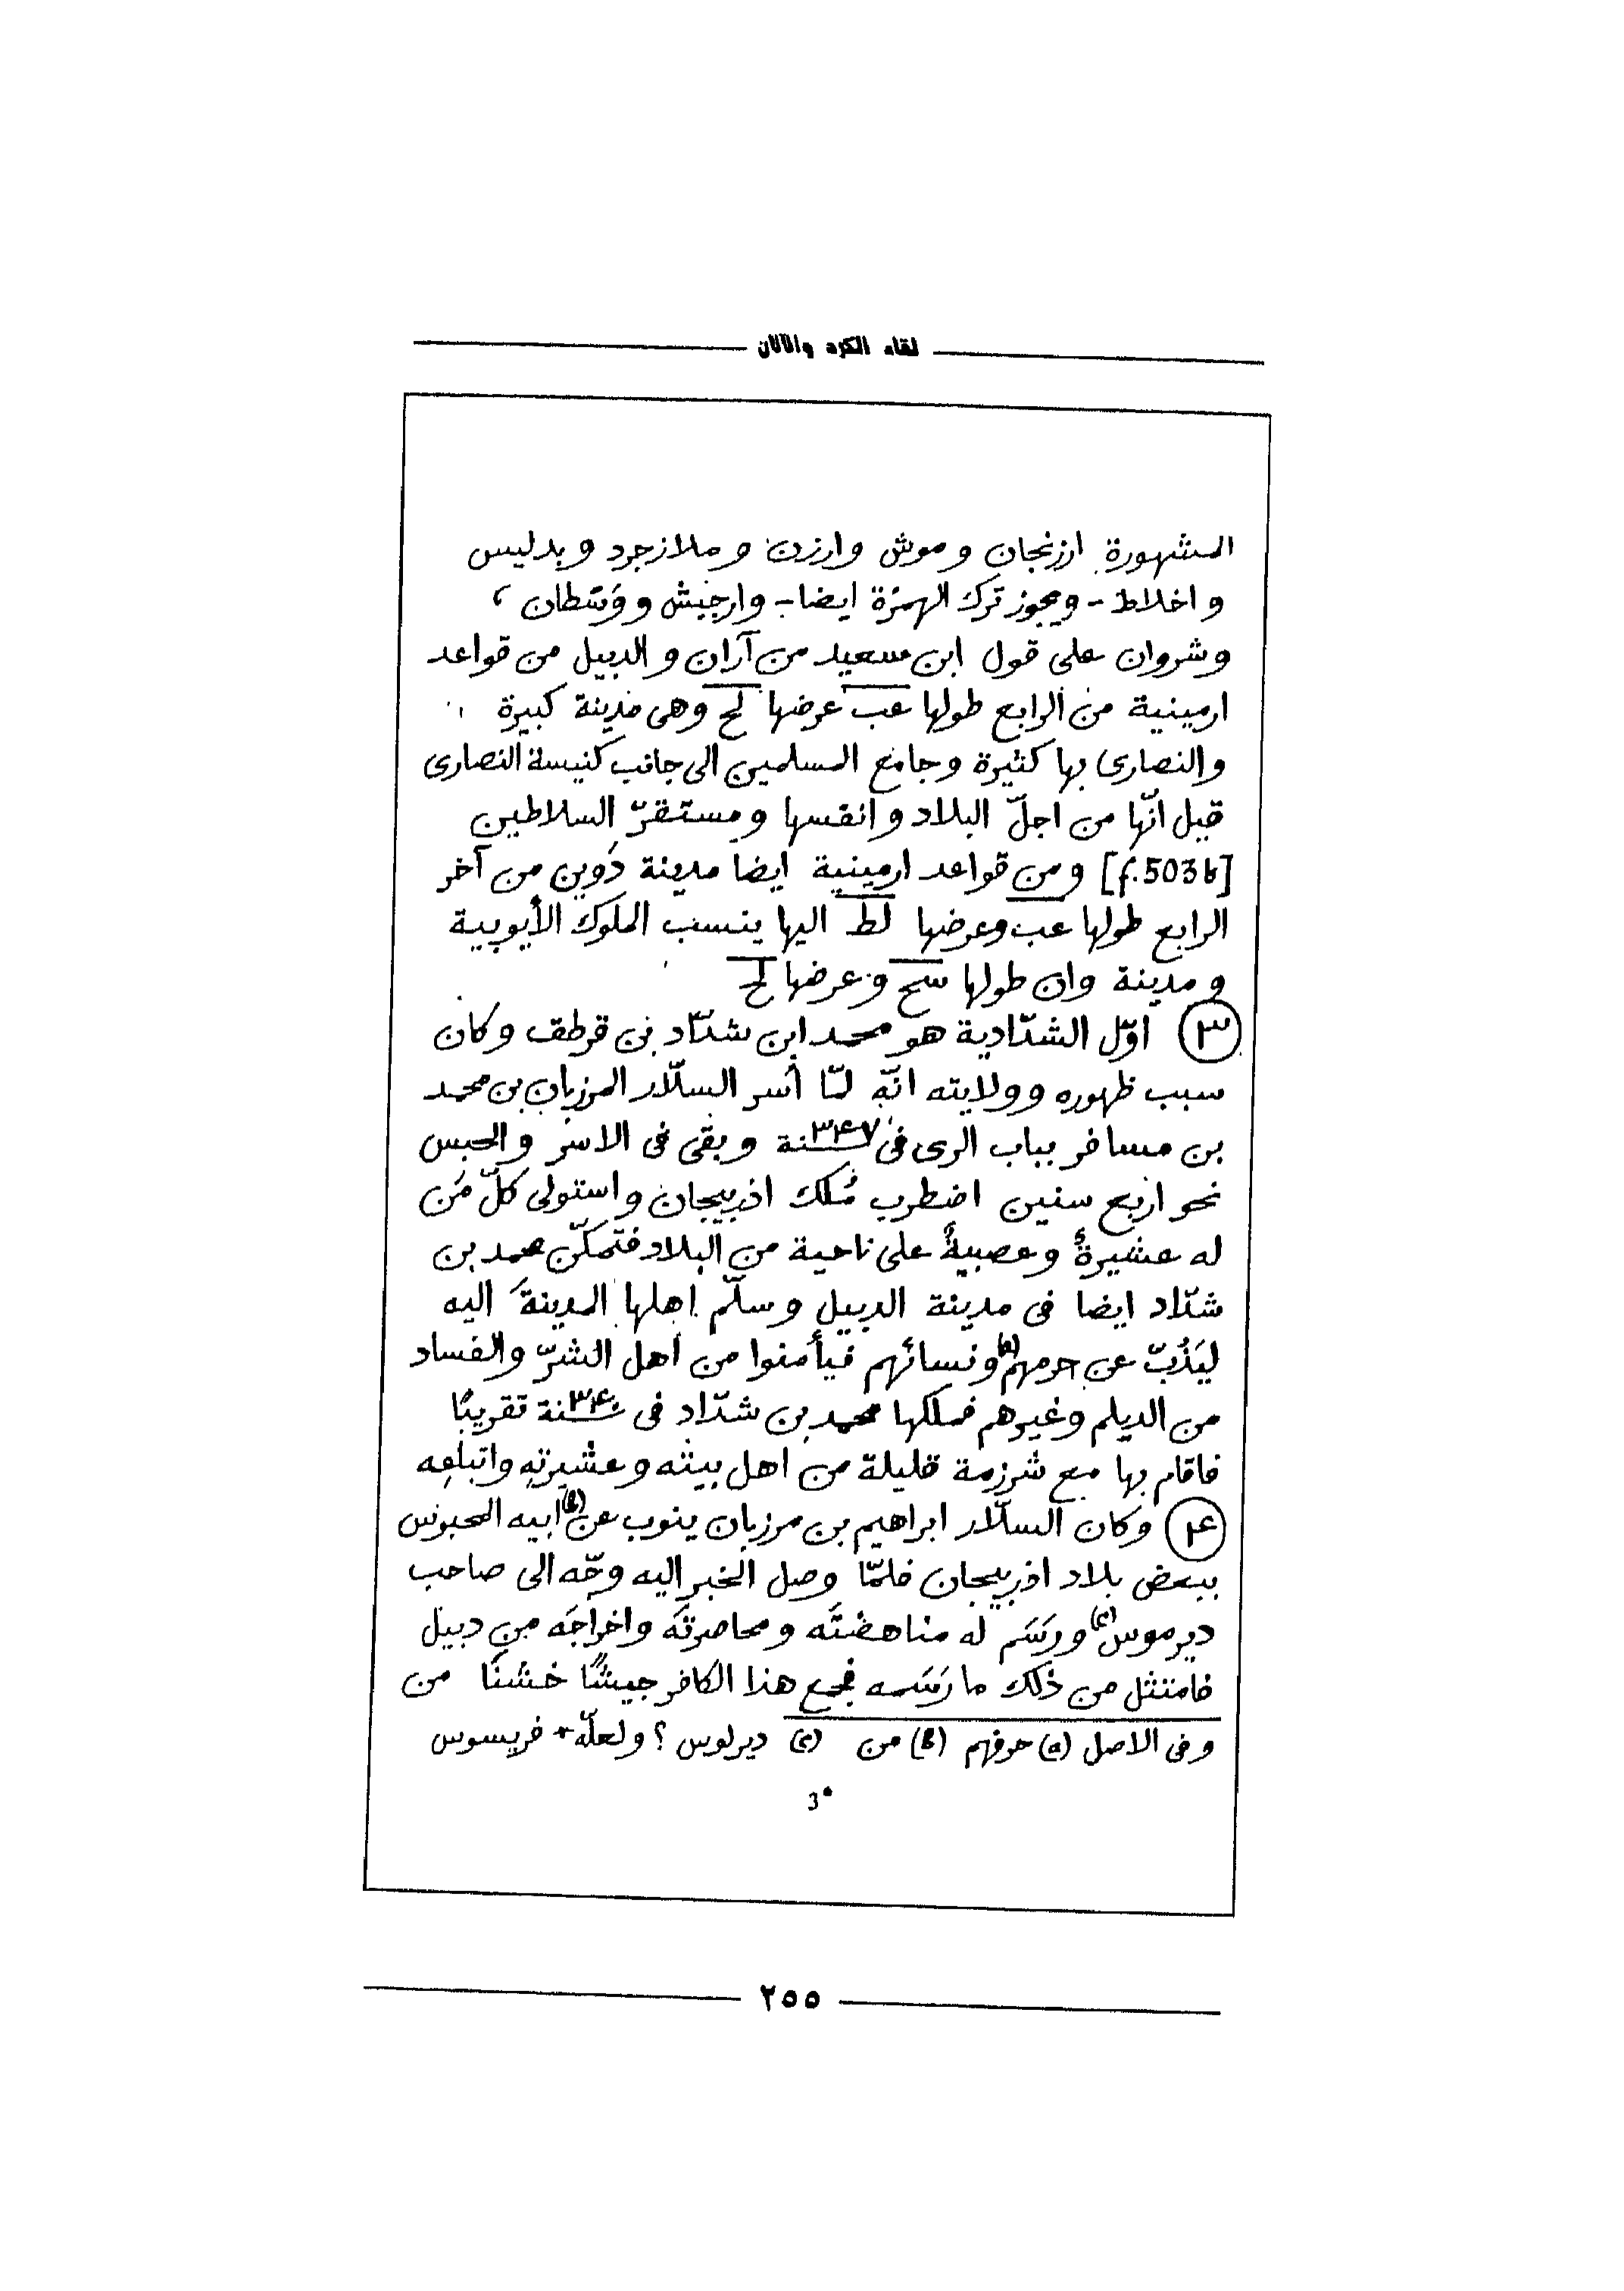 لقاء الكرد والآلان
المشهورة ارزنجان و موش وارزن و ملازجرد و بدليس
و اخلاط - ويجوز ترك الهمزة ايضا - وارجيش و وَسْطان ،
وشروان على قول ابن سعيد من آران و الدبيل من قواعد
ارمينية من الرابع طولها عب عرضها لح وهى مدينة كبيرة
والنصارى بها كثيرة وجامع المسلمين الى جانب كنيسة النصارى
قيل انّها من اجلّ البلاد و انفسها ومستقرّ السلاطين
[f.503b] ومن قواعد ارمينية ايضا مدينة دَوين من آخر
الرابع طولها عب وعرضها لط اليها ينسب الملوك الأيوبية
و مدينة وان طولها سح وعرضها لح
(٣) اوّل الشدّادية هو محمد ابن شدّاد بن قرطق وكان
سبب ظهوره وولايته انّه لمّا أسر السلّار المرزبان بن محمد
بن مسافر بباب الرى فى سنة ٣٤٧ وبقى فى الاسر والحبس
نحو اربع سنين اضطرب مُلك اذربيجان واستولى كلّ مَن
له عشيرةٌ وعصبيةٌ على ناحية من البلاد فتمكّن محمد بن
شدّاد ايضا فى مدينة الدبيل وسلّم اهلها المدينةَ اليه
ليَذُبّ عن حرمهم(a) ونسائهم فيأمنوا من اهل الشرّ والفساد
من الديلم وغيرهم فملكها محمد بن شدّاد فى سنة ٣٤٠ تقريبًا
فاقام بها مع شرزمة قليلة من اهل بيته وعشيرتِه واتباعِه
(٤) وكان السلّار ابراهيم بن مرزبان ينوب عن(b) ابيه المحبوس
ببعض بلاد اذربيجان فلمّا وصل الخبر اليه وجّه الى صاحب
ديرموس(c) ورسَم له مناهضتَه ومحاصرتَه واخراجَه من دبيل
فامتثل من ذلك ما رَسَمه فجمع هذا الكافر جيشًا خشنًا من
وفى الاصل (a) حرفهم (b) من (c) ديرلوس ؟ ولعلّه + فريسوس
3*
٢٥٥